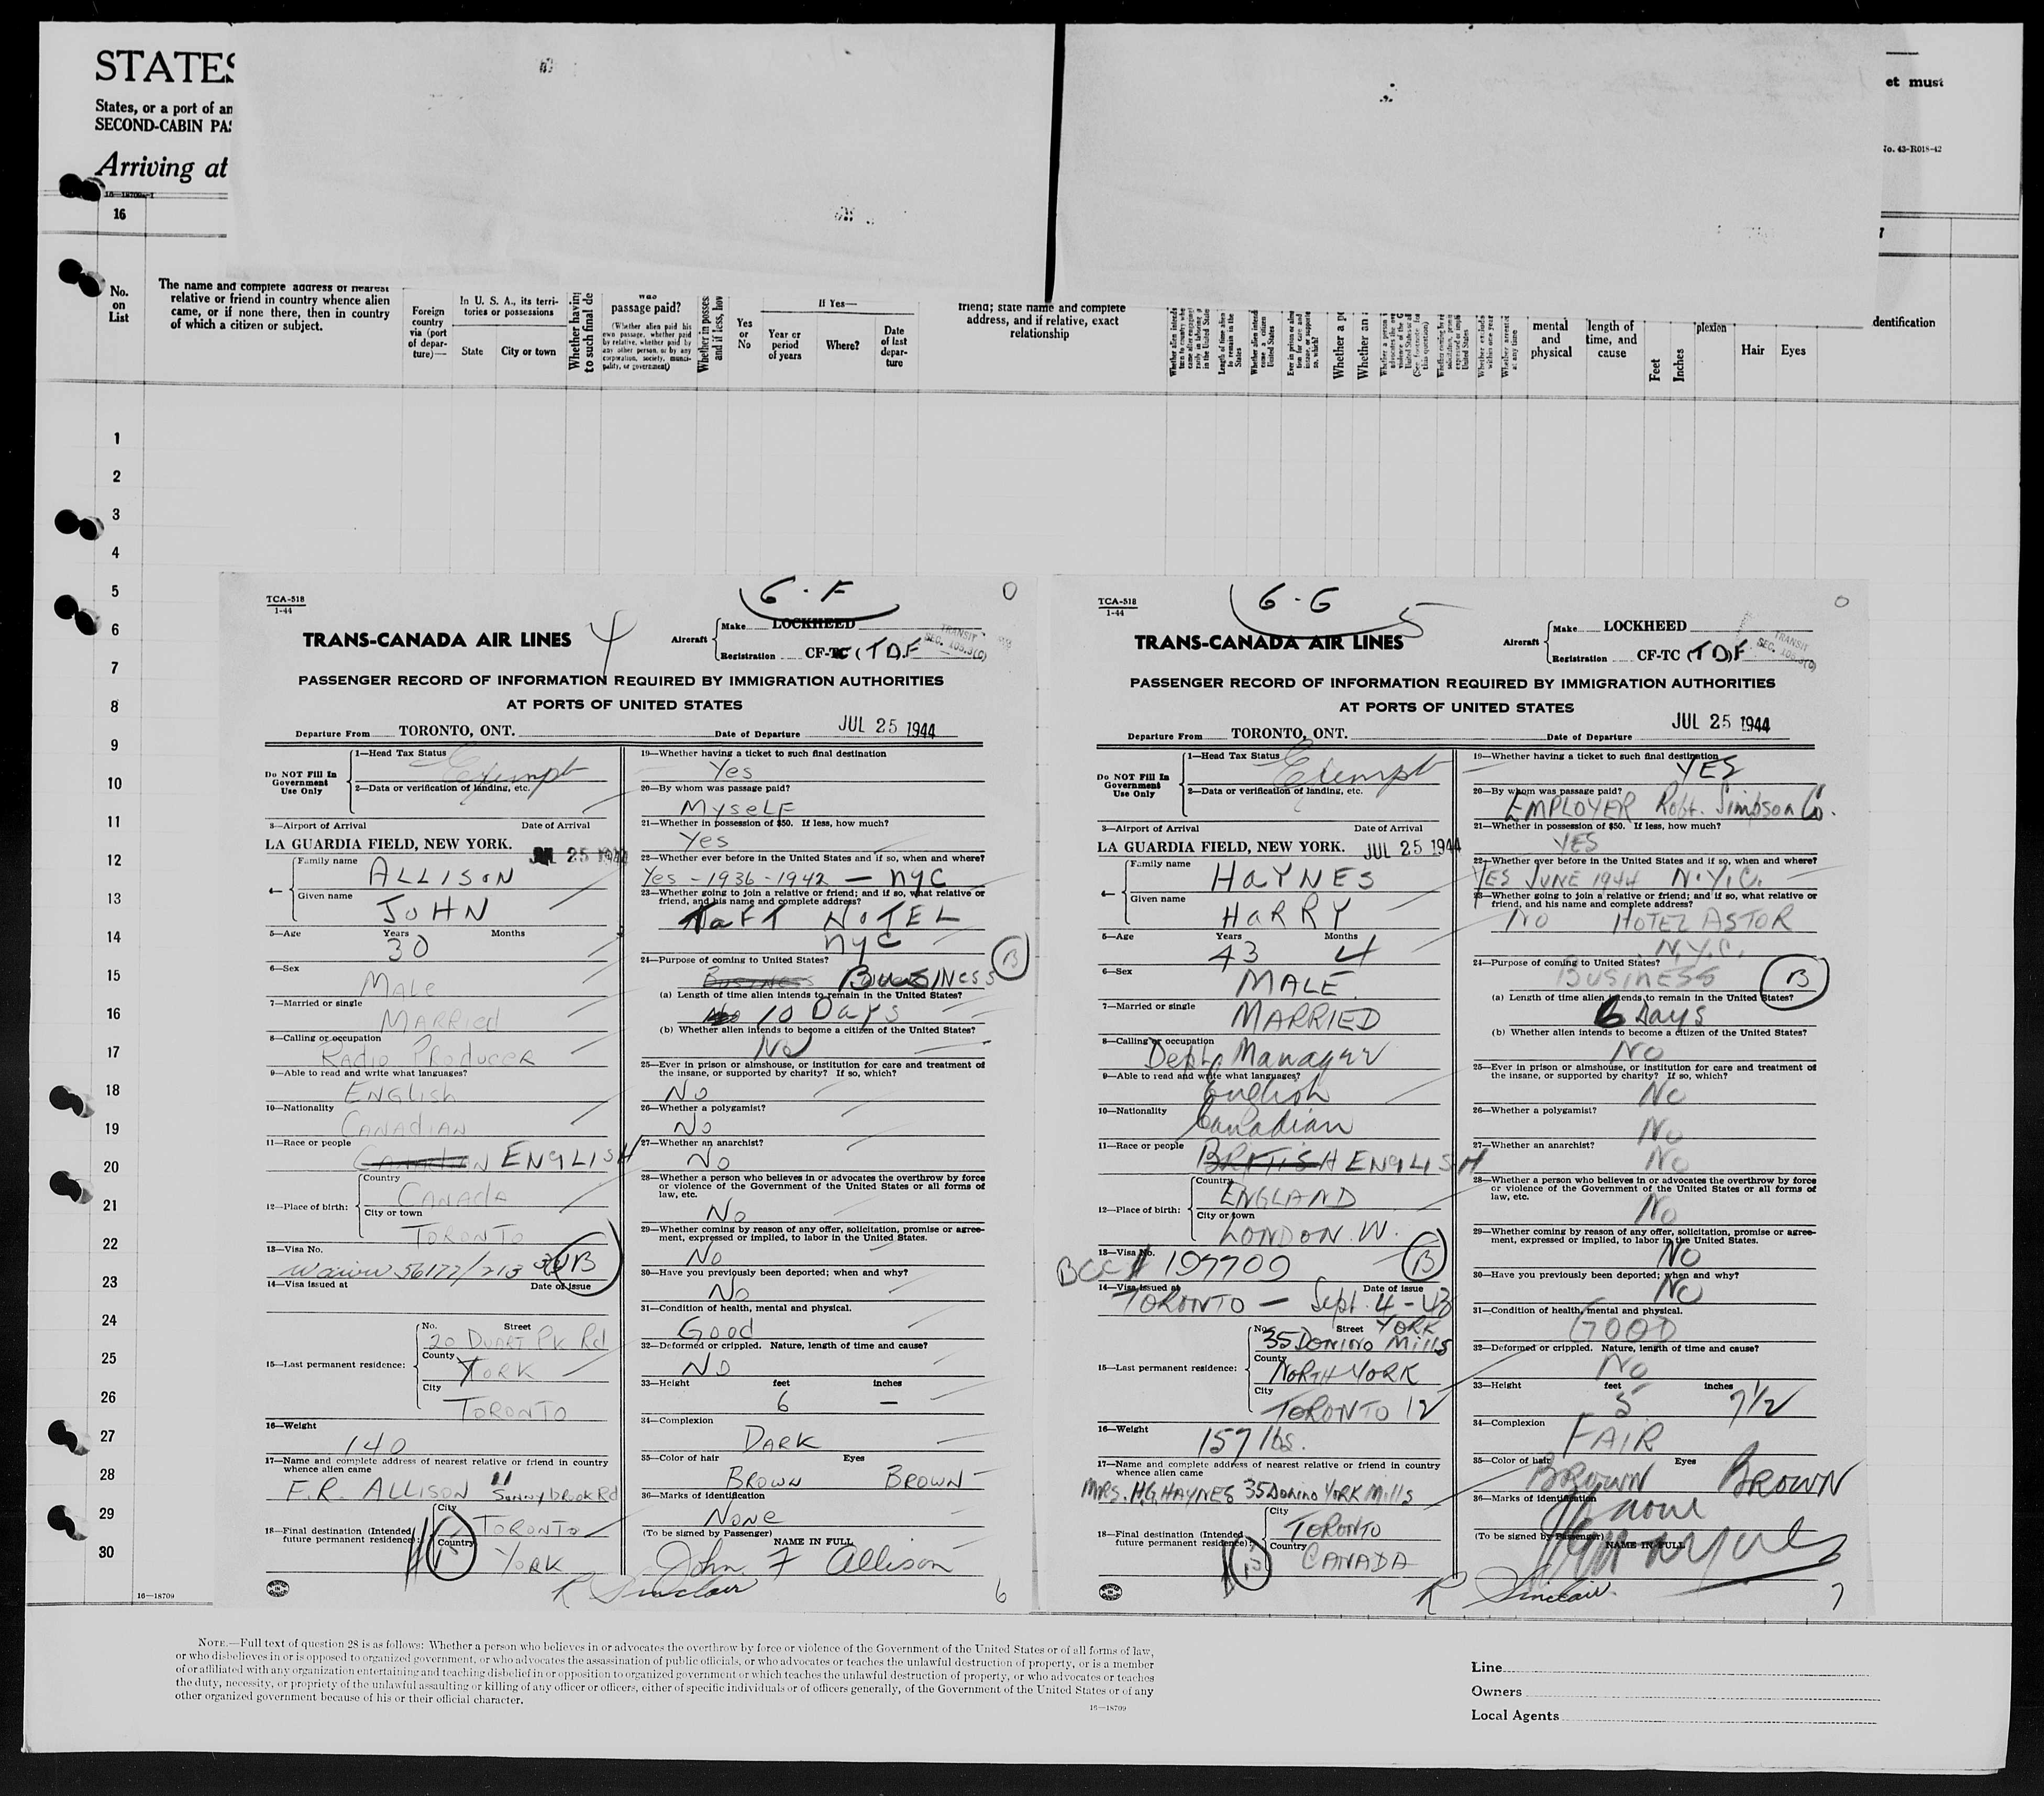 STATES
States, or a port of an
SECOND-CABIN PAS
Arriving at
et must
No. 43-R018-42
16
No. on List
The name and complete address of nearest
relative or friend in country whence alien
came, or if none there, then in country
of which a citizen or subject.
Foreign country via (port of depar-ture)—
In U. S. A., its terri-tories or possessions
State
City or town
Whether having
to such final de
was
passage paid?
(Whether alien paid his own passage, whether paid by relative, whether paid by any other person, or by any corporation, society, munici-pality, or government)
Whether in posses
and if less, how
Yes or No
If Yes—
Year or period of years
Where?
Date of last depar-ture
friend; state name and complete
address, and if relative, exact
relationship
mental and physical
length of time, and cause
Feet
Inches
plexion
Hair
Eyes
dentification
1
2
3
4
5
6
7
8
9
10
11
12
13
14
15
16
17
18
19
20
21
22
23
24
25
26
27
28
29
30
16—18709
TCA-518
1-44
6-F
0
TRANS-CANADA AIR LINES
4
Aircraft
Make LOCKHEED
Registration CF-TC (TDF
TRANSIT
SEC. 103.3(C)
PASSENGER RECORD OF INFORMATION REQUIRED BY IMMIGRATION AUTHORITIES
AT PORTS OF UNITED STATES
Departure From TORONTO, ONT.
Date of Departure JUL 25 1944
Do NOT Fill In Government Use Only
1—Head Tax Status
Exempt
2—Data or verification of landing, etc.
3—Airport of Arrival Date of Arrival
LA GUARDIA FIELD, NEW YORK. JUL 25 1944
4—
Family name
ALLISON
Given name
JOHN
5—Age Years Months
30
6—Sex
MALE
7—Married or single
MARRIED
8—Calling or occupation
RADIO PRODUCER
9—Able to read and write what languages?
ENGLISH
10—Nationality
CANADIAN
11—Race or people
CANADIAN ENGLISH
12—Place of birth:
Country
CANADA
City or town
TORONTO
13—Visa No.
Waiver 56177/213 B
14—Visa issued at Date of Issue
15—Last permanent residence:
No. Street
20 DUART PK Rd
County
YORK
City
TORONTO
16—Weight
140
17—Name and complete address of nearest relative or friend in country
whence alien came
F.R. ALLISON 11 Sunnybrook Rd
18—Final destination (Intended future permanent residence):
City
TORONTO
Country
YORK
19—Whether having a ticket to such final destination
Yes
20—By whom was passage paid?
Myself
21—Whether in possession of $50. If less, how much?
Yes
22—Whether ever before in the United States and if so, when and where?
Yes - 1936 - 1942 — NYC
23—Whether going to join a relative or friend; and if so, what relative or
friend, and his name and complete address?
TAFT HOTEL
NYC
24—Purpose of coming to United States?
BUSINESS BUSINESS B
(a) Length of time alien intends to remain in the United States?
10 Days
(b) Whether alien intends to become a citizen of the United States?
No
25—Ever in prison or almshouse, or institution for care and treatment of
the insane, or supported by charity? If so, which?
No
26—Whether a polygamist?
No
27—Whether an anarchist?
No
28—Whether a person who believes in or advocates the overthrow by force
or violence of the Government of the United States or all forms of
law, etc.
No
29—Whether coming by reason of any offer, solicitation, promise or agree-
ment, expressed or implied, to labor in the United States.
No
30—Have you previously been deported; when and why?
No
31—Condition of health, mental and physical.
Good
32—Deformed or crippled. Nature, length of time and cause?
NO
33—Height feet inches
6 —
34—Complexion
DARK
35—Color of hair Eyes
BROWN BROWN
36—Marks of identification
NONE
(To be signed by Passenger) NAME IN FULL
John F Allison
R Sinclair
6
TCA-518
1-44
6-G
5
0
TRANS-CANADA AIR LINES
Aircraft
Make LOCKHEED
Registration CF-TC (TD)F
TRANSIT
SEC. 103.3(C)
PASSENGER RECORD OF INFORMATION REQUIRED BY IMMIGRATION AUTHORITIES
AT PORTS OF UNITED STATES
Departure From TORONTO, ONT.
Date of Departure JUL 25 1944
Do NOT Fill In Government Use Only
1—Head Tax Status
Exempt
2—Data or verification of landing, etc.
3—Airport of Arrival Date of Arrival
LA GUARDIA FIELD, NEW YORK. JUL 25 1944
4—
Family name
HAYNES
Given name
HARRY
5—Age Years Months
43 4
6—Sex
MALE
7—Married or single
MARRIED
8—Calling or occupation
Dept. Manager
9—Able to read and write what languages?
English
10—Nationality
Canadian
11—Race or people
BRITISH ENGLISH
12—Place of birth:
Country
ENGLAND
City or town
LONDON. W.
13—Visa No.
BCC# 199709 B
14—Visa issued at Date of issue
TORONTO — Sept. 4-43
15—Last permanent residence:
No. Street YORK
35 DONINO MILLS
County
NORTH YORK
City
TORONTO 12
16—Weight
157 lbs.
17—Name and complete address of nearest relative or friend in country
whence alien came
MRS. H.G. HAYNES 35 Donino YORK MILLS
18—Final destination (Intended future permanent residence):
City
TORONTO
Country
CANADA
19—Whether having a ticket to such final destination
YES
20—By whom was passage paid?
EMPLOYER Robt. Simpson Co.
21—Whether in possession of $50. If less, how much?
YES
22—Whether ever before in the United States and if so, when and where?
YES JUNE 1944 N.Y.C.
23—Whether going to join a relative or friend; and if so, what relative or
friend, and his name and complete address?
NO HOTEL ASTOR
N.Y.C.
24—Purpose of coming to United States?
BUSINESS B
(a) Length of time alien intends to remain in the United States?
6 Days
(b) Whether alien intends to become a citizen of the United States?
NO
25—Ever in prison or almshouse, or institution for care and treatment of
the insane, or supported by charity? If so, which?
NO
26—Whether a polygamist?
NO
27—Whether an anarchist?
NO
28—Whether a person who believes in or advocates the overthrow by force
or violence of the Government of the United States or all forms of
law, etc.
NO
29—Whether coming by reason of any offer, solicitation, promise or agree-
ment, expressed or implied, to labor in the United States.
NO
30—Have you previously been deported; when and why?
NO
31—Condition of health, mental and physical.
GOOD
32—Deformed or crippled. Nature, length of time and cause?
NO
33—Height feet inches
5 7 1/2
34—Complexion
FAIR
35—Color of hair Eyes
BROWN BROWN
36—Marks of identification
none
(To be signed by Passenger) NAME IN FULL
R Sinclair
7
NOTE.—Full text of question 28 is as follows: Whether a person who believes in or advocates the overthrow by force or violence of the Government of the United States or of all forms of law,
or who disbelieves in or is opposed to organized government, or who advocates the assassination of public officials, or who advocates or teaches the unlawful destruction of property, or is a member
of or affiliated with any organization entertaining and teaching disbelief in or opposition to organized government or which teaches the unlawful destruction of property, or who advocates or teaches
the duty, necessity, or propriety of the unlawful assaulting or killing of any officer or officers, either of specific individuals or of officers generally, of the Government of the United States or of any
other organized government because of his or their official character.
16—18709
Line
Owners
Local Agents